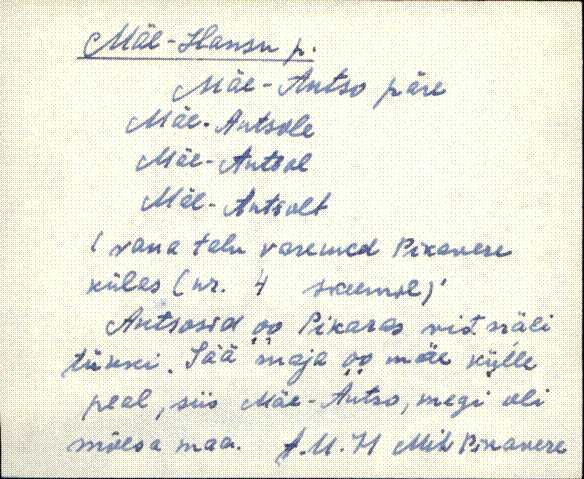 Mäe-Hansu p.
Mäe-Antso päre
Mäe-Antsole
Mäe-Antsol
Mäe-Antsolt
( vana talu varemed Pikavere
külas (nr. 4 skeemil)'
Antsosid oo Pikaras vist näli
tükki. Sää maja oo mäe külle
peal, siis Mäe-Antso, megi oli
mõesa maa. Mih Pikavere